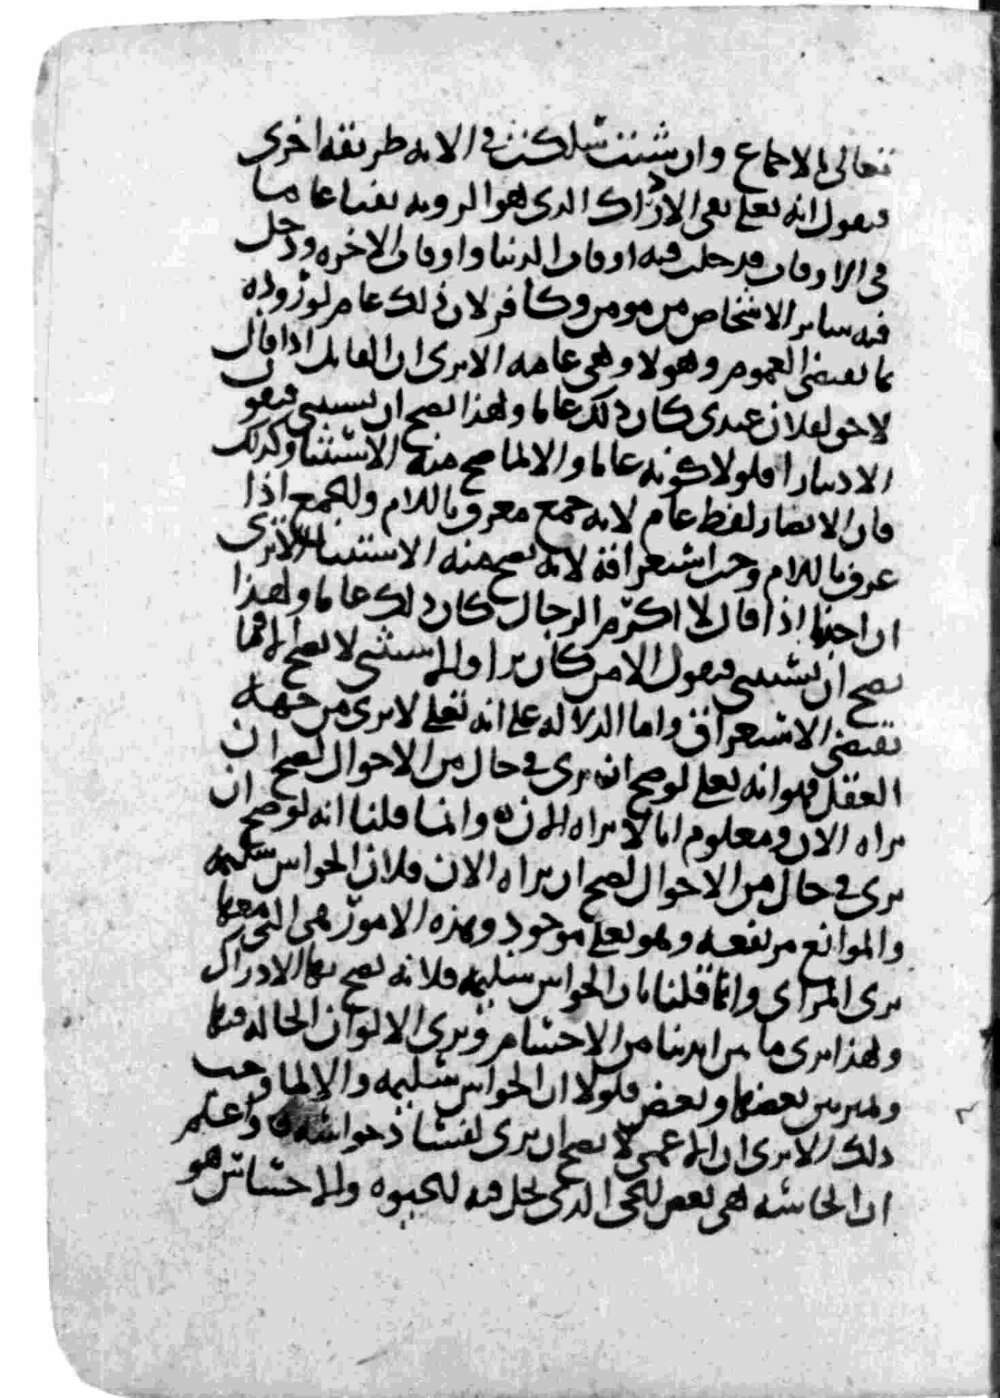 تعالى بالاجماع وان شئت سلكت في الايه طريقه اخرى
فيقول انه تعلى نفى الادراك الذي هو الرويه نفيا عاما
في الاوقات فدخلت فيه اوقات الدنيا واوقات الاخره ودخل
فيه ساير الاشخاص من مومن وكافر لان ذلك عام لوروده
بما يقتضي العموم وهو لا وهي عامه الا ترى ان القايل اذا قال
لا حق لفلان عندي كان ذلك عاما ولهذا يصح ان يستثني فيقول
الا دينارا فلولا كونه عاما والا لما صح منه الاستثنا وكذلك
فان الابصار لفظ عام لانه جمع معرف باللام والجمع اذا
عرف باللام وجب استغراقه لانه يصح منه الاستثنا الا ترى
ان احدنا اذا قال لا اكرم الرجال كان ذلك عاما ولهذا
يصح ان يستثنى فيقول الا من كان برا والاستثنى لا يصح الا فيما
يقتضي الاستغراق واما الدلاله على انه تعلى لا يرى من جهه
العقل فهو انه تعلى لو صح ان يرى في حال من الاحوال لصح ان
نراه الان ومعلوم انا لا نراه الان وانما قلنا انه لو صح ان
يرى في حال من الاحوال لصح ان نراه الان فلان الحواس سليمه
والموانع مرتفعه وهو تعلى موجود وهذه الامور هي التي معها
يرى المراى وانما قلنا بان الحواس سليمه فلانه يصح بها الادراك
ولهذا نرى ما بين ايدينا من الاجسام ونرى الالوان الحاله فيها
ونميز بين بعضها وبعض فلولا ان الحواس سليمه والا لما وجب
ذلك الا ترى ان الاعمى لا يصح ان يرى لفساد حواسه واعلم
ان الحاسه هي بعض الحي الذي تحل فيه الحيوه والاحساس هو